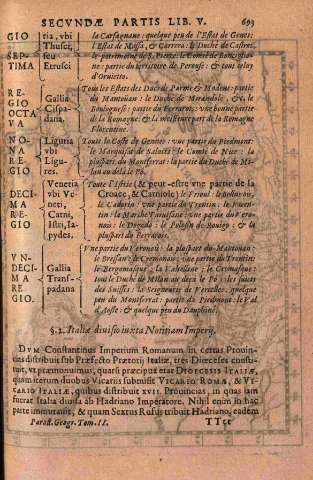 SECVNDÆ PARTIS LIB. V. 693
GIO
SEPTIMA
tia, vbi
Thusci,
seu
Etrusci
la Carfagnane: quelque peu de l'Estat de Genes:
l'Estat de Massa, & Carrera: le Duché de Castres,
le patrimoine de S. Pierre: le Comté de
partie du territoire de Perouse: & tout celuy
d'Orvieto.
REGIO
OCTAVA
Gallia
Cispadana.
Tous les Estats des Ducs de Parme & Modene: partie
du Mantouan: le Duché de Mirandole, &c, le
Boulognese: partie du Ferrarois: vne bonne partie
de la Romagne: & la meilleure part de la Romagne
Florentine.
NONA
REGIO
Ligustia
vbi
Ligures.
Toute la Coste de Gennes: vne partie du Piedmont:
le Marquisat de Saluces: le Comté de Nice: la
pluspart du Montferrat: la partie du Duché de Milan
au delà le Pô.
DECIMA
REGIO
Venetia
vbi Veneti,
Carni,
Istri, Iapydes.
Toute l'Istrie (& peut-estre vne partie de la
Croace, & Carniole) le Frioul: le Bellunois,
le Cadorin: vne partie du Trentin: le Vicentin:
la Marche Taruisane: vne partie du Veronois:
le Dogado: le Polesin de Rouigo: & la
pluspart du Ferrarois.
VNDECIMA
REGIO.
Gallia
Transpadana
Vne partie du Veronois: la pluspart du Mantouan:
le Bressan: le Cremonois: vne partie du Trentin:
le Bergomasque: la Valtelline: le Cremasque:
tout le Duché de Milan au deçà le Pô: les suiets
des Suisses: la Seigneurie de Verceilles: quelque
peu du Montferrat: partie du Piedmont: le Val
d'Aoste: & quelque peu du Dauphiné.
§. 2. Italiæ diuisio iuxta Notitiam Imperij.
DVM Constantinus Imperium Romanum in certas Prouintias
distribuit sub Præfecto Prætorij Italiæ, tres Dioceses constituit,
vt præmonuimus, quarũ præcipua erat DIOECESIS ITALIÆ,
quam iterum duobus Vicariis submisit VICARIO ROMÆ, & VICARIO
ITALIÆ, quibus distribuit XVII. Prouincias, in quas iam
fuerat Italia diuisa ab Hadriano Imperatore. Nihil enim in hac
parte immutauit, & quam Sextus Rufus tribuit Hadriano, eadem
Parall. Geogr. Tom. II. TTtt